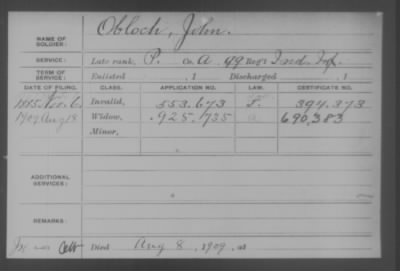 NAME OF SOLDIER: Obloch, John.
SERVICE: Late rank, P. Co. A. 49 Reg't Ind. Inf.
TERM OF SERVICE: Enlisted , 1 Discharged , 1
DATE OF FILING. CLASS. APPLICATION NO. LAW. CERTIFICATE NO.
1885 Nov. 6 Invalid, 553.673 F. 394.373
1909 Aug 18 Widow, .925.735 a 690,383
Minor,
ADDITIONAL SERVICES:
REMARKS:
Died Aug 8, 1909, at